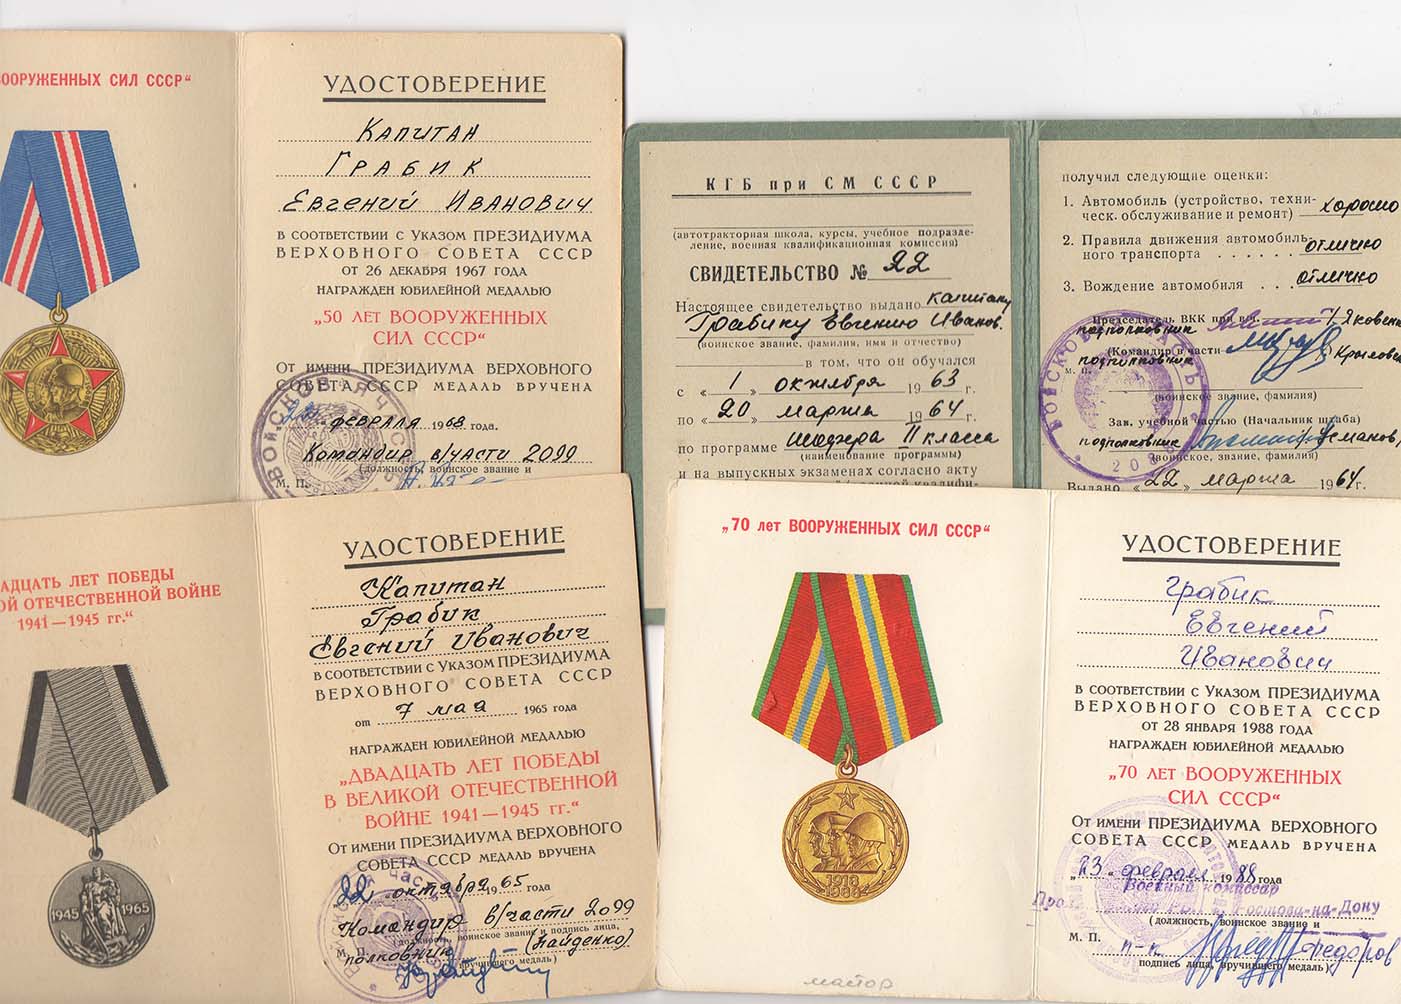 ВООРУЖЕННЫХ СИЛ СССР“
УДОСТОВЕРЕНИЕ
Капитан
Грабик
Евгений Иванович
в соответствии с Указом ПРЕЗИДИУМА
ВЕРХОВНОГО СОВЕТА СССР
от 26 декабря 1967 года
награжден юбилейной медалью
„50 ЛЕТ ВООРУЖЕННЫХ
СИЛ СССР“
От имени ПРЕЗИДИУМА ВЕРХОВНОГО
СОВЕТА СССР медаль вручена
февраля 1968 года.
Командир в/части 2099
(должность, воинское звание и
М. П.
КГБ при СМ СССР
(автотракторная школа, курсы, учебное подразде-
ление, военная квалификационная комиссия)
СВИДЕТЕЛЬСТВО № 22
Настоящее свидетельство выдано капитану
Грабику Евгению Иванов.
(воинское звание, фамилия, имя и отчество)
в том, что он обучался
с «1» октября 1963 г.
по «20» марта 1964 г.
по программе шофера II класса
(наименование программы)
и на выпускных экзаменах согласно акту
получил следующие оценки:
1. Автомобиль (устройство, техни-
ческ. обслуживание и ремонт) хорошо
2. Правила движения автомобиль-
ного транспорта . . . . . . отлично
3. Вождение автомобиля . . . отлично
Председатель ВКК при в/ч
подполковник
(Командир в части
подполковник
М. П.
(воинское звание, фамилия)
Зав. учебной частью (Начальник штаба)
подполковник
(воинское звание, фамилия)
Выдано «22» марта 1964 г.
ВОЙСКОВАЯ ЧАСТЬ
ДВАДЦАТЬ ЛЕТ ПОБЕДЫ
ОЙ ОТЕЧЕСТВЕННОЙ ВОЙНЕ
1941—1945 гг.“
1945 1965
УДОСТОВЕРЕНИЕ
Капитан
Грабик
Евгений Иванович
в соответствии с Указом ПРЕЗИДИУМА
ВЕРХОВНОГО СОВЕТА СССР
от 7 мая 1965 года
награжден юбилейной медалью
„ДВАДЦАТЬ ЛЕТ ПОБЕДЫ
В ВЕЛИКОЙ ОТЕЧЕСТВЕННОЙ
ВОЙНЕ 1941—1945 гг.“
От имени ПРЕЗИДИУМА ВЕРХОВНОГО
СОВЕТА СССР медаль вручена
22 октября 1965 года
Командир в/части 2099
(должность, воинское звание и подпись лица,
М. П. полковник (Найденко)
вручившего медаль)
„70 лет ВООРУЖЕННЫХ СИЛ СССР“
1918
1988
майор
УДОСТОВЕРЕНИЕ
Грабик
Евгений
Иванович
в соответствии с Указом ПРЕЗИДИУМА
ВЕРХОВНОГО СОВЕТА СССР
от 28 января 1988 года
награжден юбилейной медалью
„70 ЛЕТ ВООРУЖЕННЫХ
СИЛ СССР“
От имени ПРЕЗИДИУМА ВЕРХОВНОГО
СОВЕТА СССР медаль вручена
„23“ февраля 1988 года
Военный комиссар
Ростова-на-Дону
(должность, воинское звание и
М. П. п-к Федоров
подпись лица, вручившего медаль)